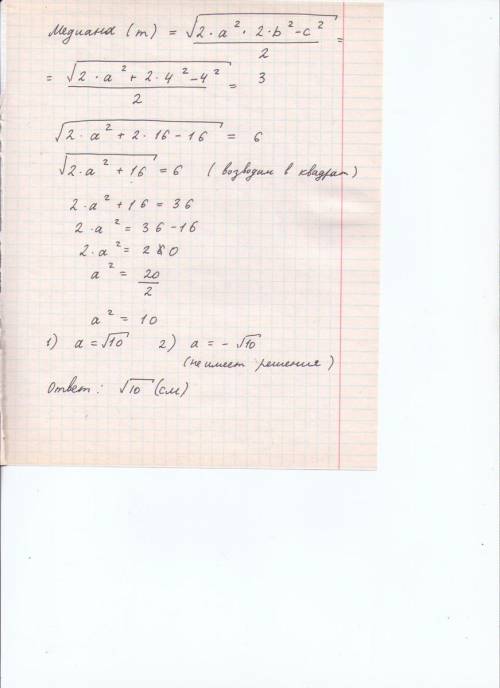 Медиана (m) = √(2·a²·2·b²-c²)/2 =
= √(2·a²+2·4²-4²)/2 = 3
√(2·a²+2·16-16) = 6
√(2·a²+16) = 6 (возводим в квадрат)
2·a²+16 = 36
2·a² = 36-16
2·a² = 20
a² = 20/2
a² = 10
1) a = √10 2) a = -√10
(не имеет решения)
Ответ: √10 (см)